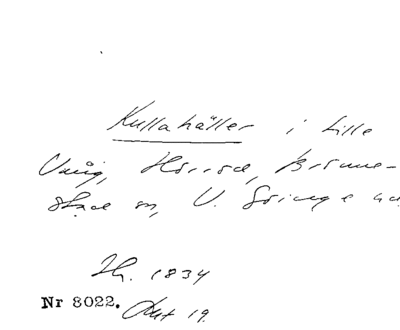 Kullahäller i Lille
Vråg, Hörröd, Brönne-
stad sn, V. Göinge hd
Jh. 1834
Nr 8022. Akt 19.